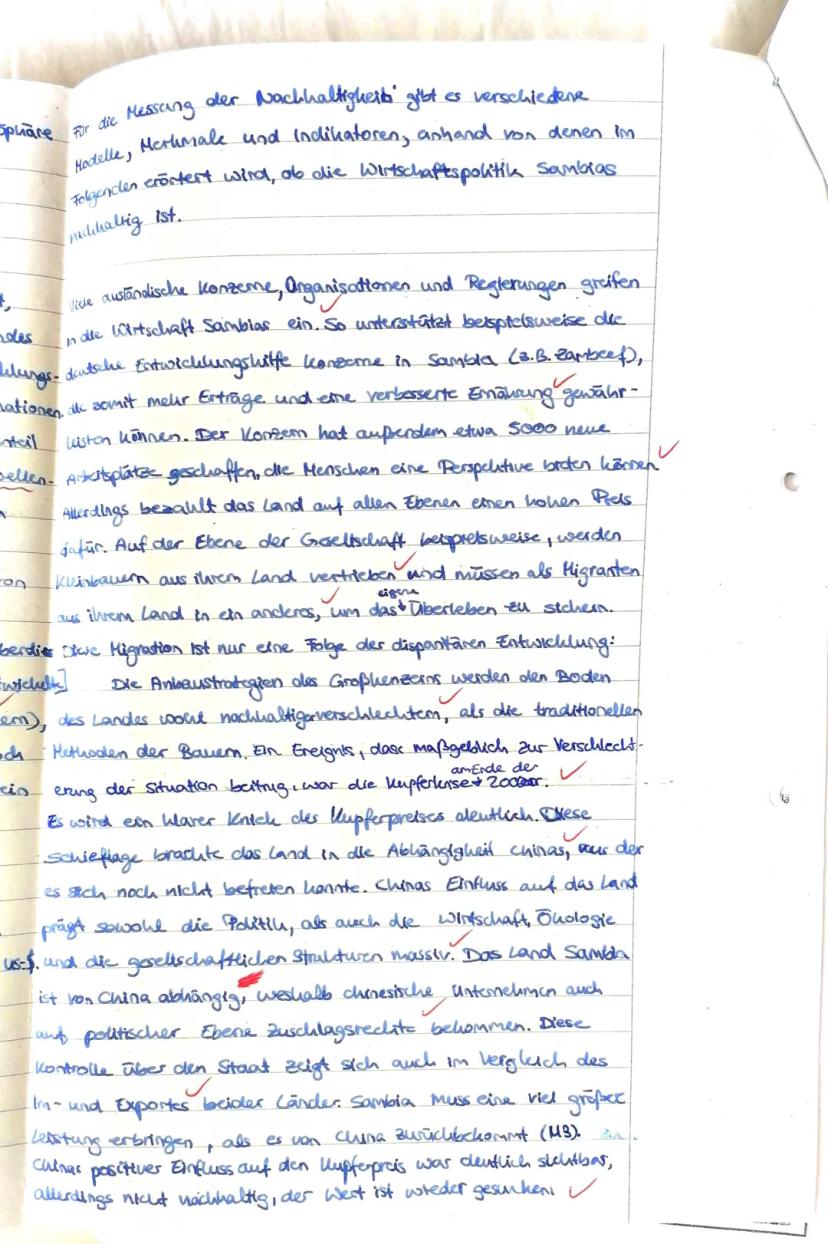 Für die Messung der Nachhaltigkeit gibt es verschiedene
sphäre
Modelle, Merkmale und Indikatoren, anhand von denen im
Folgenden erörtert wird, ob die Wirtschaftspolitik Sambias
nachhaltig ist.
Viele ausländische Konzerne, Organisationen und Regierungen greifen
in die Wirtschaft Sambias ein. So unterstützt beispielsweise die
ndes
deutsche Entwicklungshilfe Konzerne in Sambia (z.B. Zambeef),
klungs-
die somit mehr Erträge und eine verbesserte Ernährung gewähr-
nationen.
leisten können. Der Konzern hat außerdem etwa 5000 neue
nteil
Arbeitsplätze geschaffen, die Menschen eine Perspektive bieten können
sellen-
Allerdings bezahlt das Land auf allen Ebenen einen hohen Preis
dafür. Auf der Ebene der Gesellschaft beispielsweise, werden
Kleinbauern aus ihrem Land vertrieben und müssen als Migranten
on
eigene
aus ihrem Land in ein anderes, um das Überleben zu sichern.
Diese Migration ist nur eine Folge der disparitären Entwicklung:
berdies
Die Anbaustrategien des Großkonzerns werden den Boden
twickelt]
des Landes wohl nachhaltiger verschlechtern, als die traditionellen
ern),
Methoden der Bauern. Ein Ereignis, dass maßgeblich zur Verschlecht-
ch
am Ende der
erung der Situation beitrug, war die Kupferkrise 2000er.
ein
Es wird ein klarer Knick des Kupferpreises deutlich. Diese
Schieflage brachte das Land in die Abhängigkeit Chinas, aus der
es sich noch nicht befreien konnte. Chinas Einfluss auf das Land
prägt sowohl die Politik, als auch die Wirtschaft, Ökologie
und die gesellschaftlichen Strukturen massiv. Das Land Sambia
US-$.
ist von China abhängig, weshalb chinesische Unternehmen auch
auf politischer Ebene Zuschlagsrechte bekommen. Diese
Kontrolle über den Staat zeigt sich auch im Vergleich des
Im- und Exportes beider Länder. Sambia muss eine viel größere
Leistung erbringen, als es von China zurückbekommt (M3).
Chinas positiver Einfluss auf den Kupferpreis war deutlich sichtbar,
allerdings nicht nachhaltig, der Wert ist wieder gesunken.